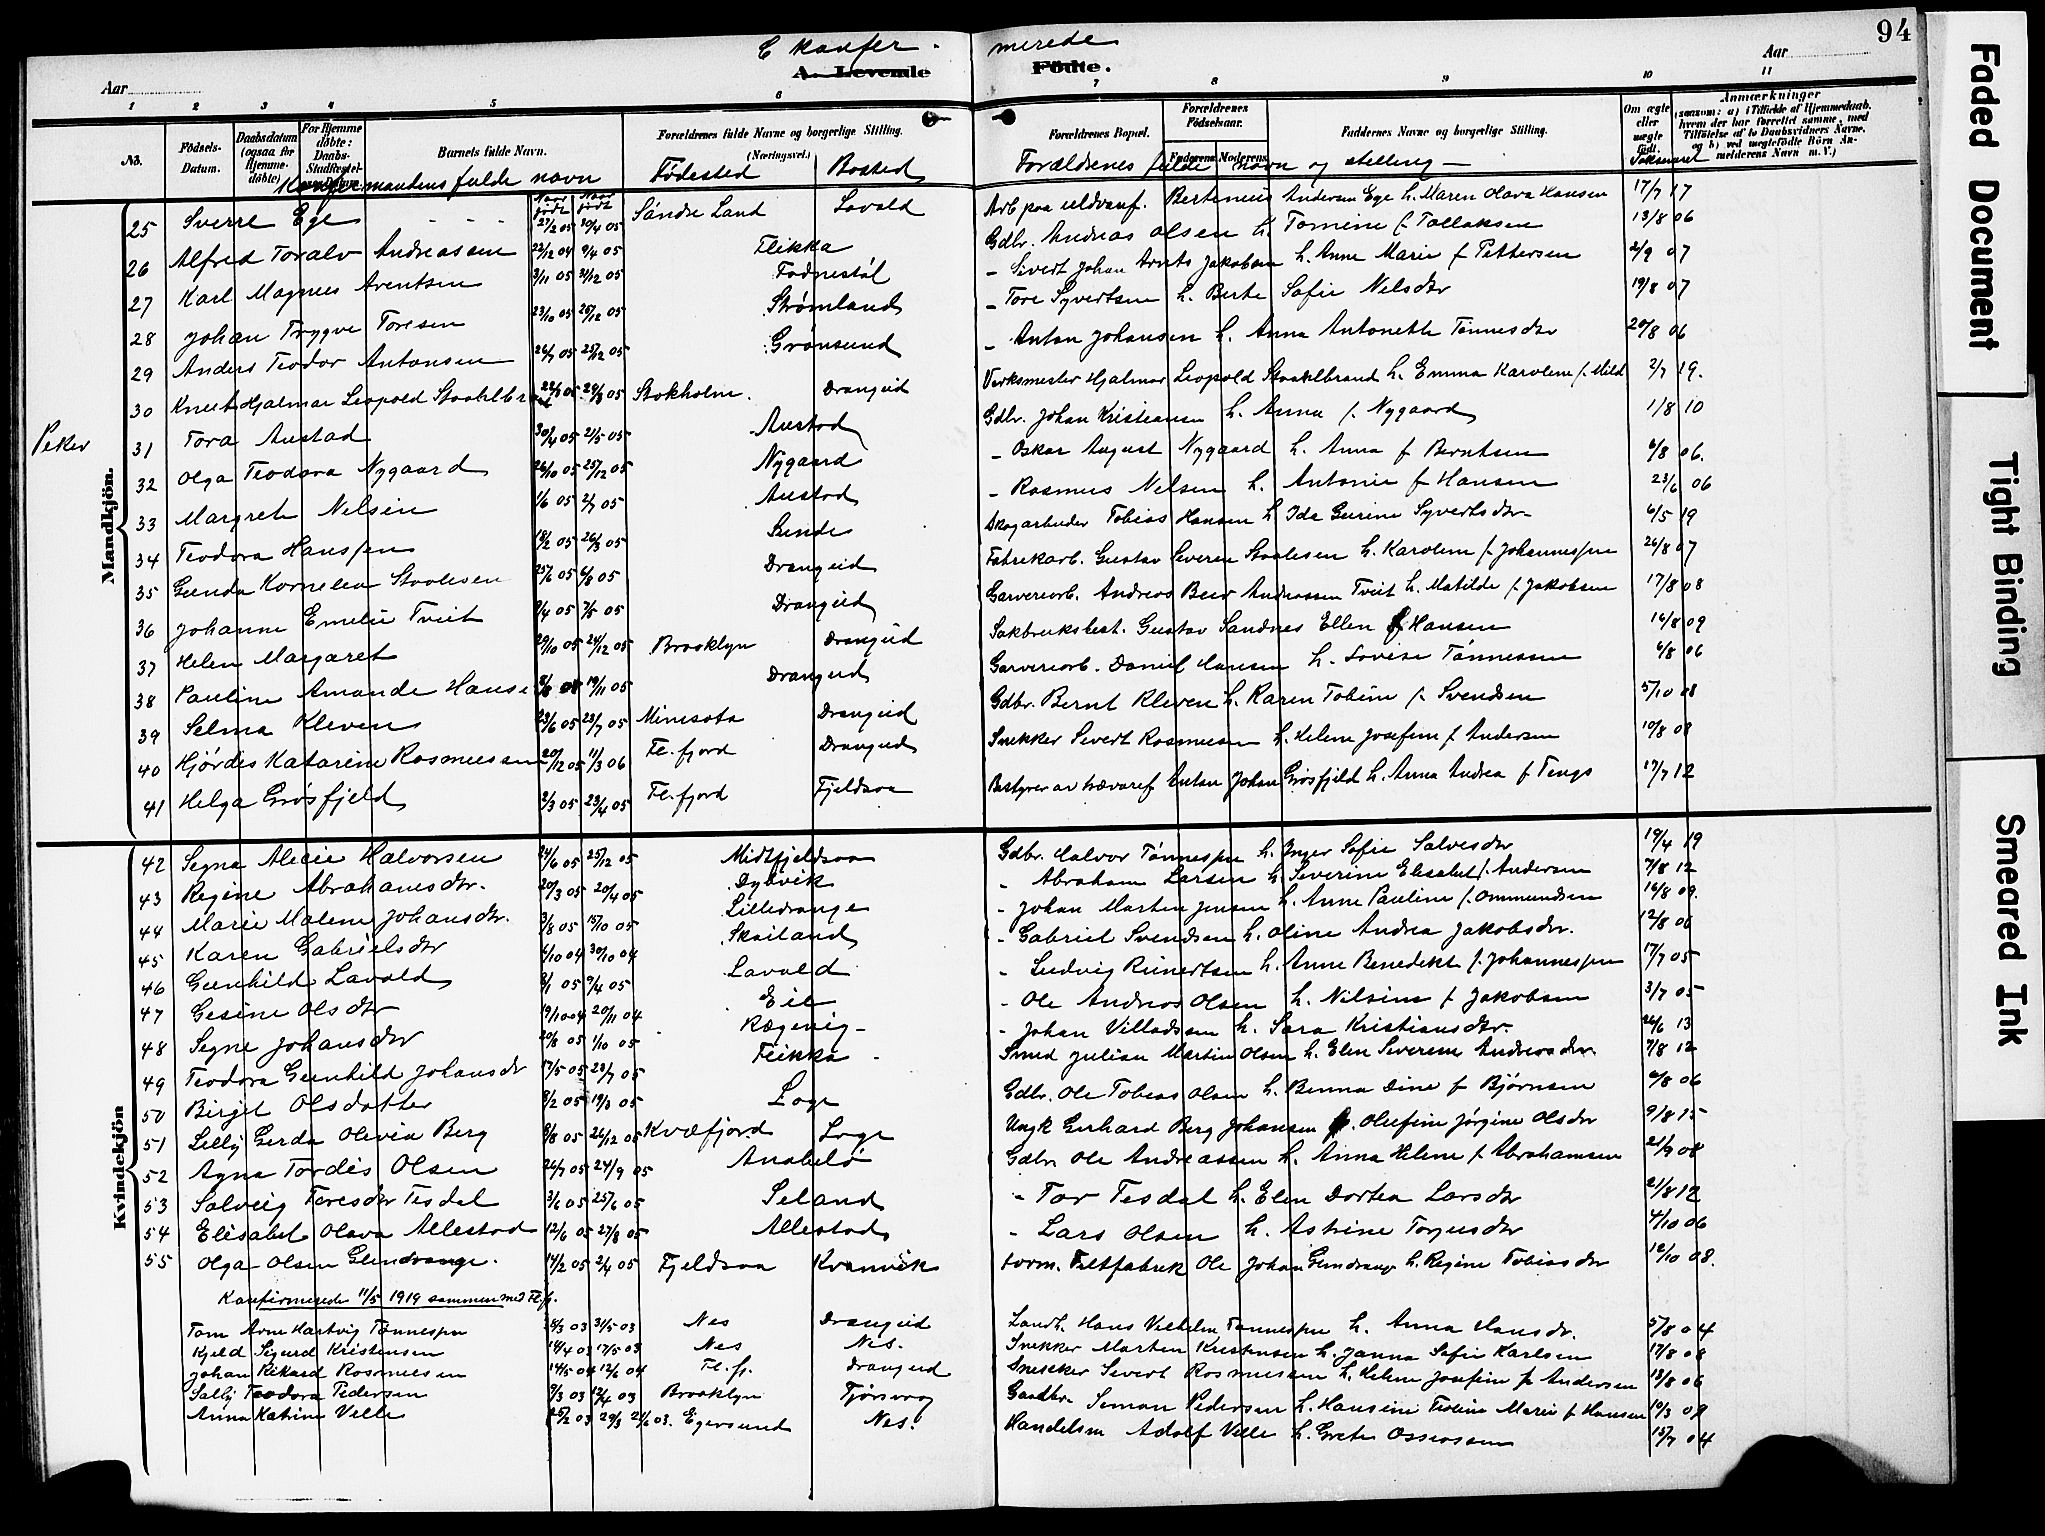 C Konfir- merede
94
A. Levende Fødte.
Aar
Aar
1 2 3 4 5 6 7 8 9 10 11
No. Fødsels-Datum. Daabsdatum (ogsaa for Hjemmedøbte) For Hjemmedøbte: Barnets fulde Navn. Forældrenes fulde Navne og borgerlige Stilling. (Næringsvei.) Forældrenes Bopæl. Forældrenes Fødselsaar. Faderens Moderens Faddernes Navne og borgerlige Stilling. Om ægte eller uægte født. Anmærkninger
Konfirmandens fulde navn Naar født Naar døbt Fødested Bosted Forældrenes fulde navn og stilling
Mandkjön.
25 Sverre Ege 27/2 05 10/4 05 Søndre Land Lavold Arb paa uldvarf. Bertinius Andersen Ege h. Maren Olava Hansen 17/7 17
26 Alfred Toralv Andreassen 22/12 04 9/4 05 Flikka Gdbr. Andreas Olsen h. Tomine f. Tollaksen 13/8 06
27 Karl Magnus Arentsen 3/11 05 31/12 05 Fodnestøl - Sivert Johan Arnts Jakobsen h. Anne Marie f Pettersen 2/9 07
28 Johan Trygve Toresen 23/10 05 26/12 05 Strømland - Tore Syvertsen h. Berte Sofie Nelsdtr 19/8 07
29 Anders Teodor Antonsen 26/7 05 25/12 05 Grønsund - Anton Johansen h. Anna Antonette Tønnesdtr 20/8 06
30 Knut Hjalmar Leopold Staahlbrand 22/1 05 24/3 05 Stokholm. Drangeid Verksmester Hjalmar Leopold Staahlbrand h. Emma Karoline f. Mild 2/7 19.
Piker
31 Tora Austad 30/4 05 21/5 05 Austad Gdbr. Johan Kristiansen h. Anna f. Nygaard 1/8 10
32 Olga Teodora Nygaard 26/10 05 25/12 05 Nygaard - Oskar August Nygaard h. Anna f Berntsen 6/8 06.
33 Margrete Nelsine 1/6 05 2/7 05 Austad - Rasmus Nelsen h. Antonie f Hansen 23/6 06
34 Teodora Hanssen 18/2 05 26/3 05 Sunde Skogarbeider Tobias Hansen h Ida Gurine Syvertsdtr 6/5 19
35 Gunda Kornelia Staalesen 25/6 05 6/8 05 Drangeid Fabrikarb. Gustav Severin Staalesen h. Karoline f. Johannessen 26/8 07
36 Johanne Emelie Tveit 9/4 05 7/5 05 Drangeid Garveriarb. Andreas Beer Andreassen Tveit h. Matilde f. Jakobsen 17/8 08
37 Helen Margaret 29/10 05 24/12 05 Brooklyn Drangeid Sakbruksbest. Gustav Sandnes Ellen f Hansen 16/8 09
38 Pauline Amanda Hansen 19/11 05 Drangeid Garveriarb. Daniel Hansen h. Lovise Tønnessen 6/8 06
39 Selma Kleven 23/6 05 23/7 05 Minesota Drangeid Gdbr. Bernt Kleven h. Karen Tobine f. Svendsen 5/10 08
40 Hjørdis Katarine Rasmussen 20/12 05 11/3 06 Fl.fjord Drangeid Snekker Severt Rasmussen h. Helene Josefine f. Andersen 10/8 08
41 Helga Grøsfjeld 2/3 05 23/4 05 Fl.fjord Fjeldsaa Bestyrer av trævaref Anton Johan Grøsfjeld h. Anna Andrea f Tengs 17/7 12
Kvindekjön
42 Segna Alecie Halvorsen 24/6 05 25/12 05 Midtfjeldsaa Gdbr. Halvor Tønnessen h. Inger Sofie Salvesdtr 19/4 19
43 Regine Abrahamsdtr. 20/3 05 20/4 05 Dybvik - Abraham Larsen h. Severine Elisabet f. Andersen 7/8 12
44 Marie Malene Johansdtr. 3/8 05 15/10 05 Lilledrange - Johan Marten Jensen h. Anne Pauline f. Ommundsen 16/8 09.
45 Karen Gabrielsdtr 6/10 04 30/10 04 Skailand - Gabriel Svendsen h. Oline Andrea Jakobsdtr. 12/8 06
46 Gunhild Lavold 8/1 05 9/4 05 Lavold - Ludvig Reinertsen h. Anne Benedikte f. Johannessen 17/7 05
47 Gesine Olsdtr 19/10 04 20/11 04 Eie - Ole Andreas Olsen h. Nilsine f Jakobsen 3/7 05
48 Segne Johansdtr 20/8 05 1/10 05 Rægevig - Johan Villadsen h. Sara Kristiansdtr. 26/6 13
49 Teodora Gunhild Johansdtr 17/5 05 23/7 05 Flikka Smed Julian Martin Olsen h. Elen Severine Andreasdtr. 7/8 12
50 Birgit Olsdatter 8/2 05 19/3 05 Loge Gdbr. Ole Tobias Olsen h. Benna Dine f Bjørnsen 6/8 06
51 Lilly Gerda Olivia Berg 8/8 05 26/12 05 Kvæfjord Loge Ungk Gerhard Berg Johansen f. Olufine Jørgine Olsdtr 9/8 15
52 Agna Tordis Olsen 26/7 05 24/9 05 Anabelø Gdbr Ole Andreassen h. Anna Helene f. Abrahamsen 21/9 08
53 Solveig Toresdtr Tesdal 3/6 05 25/6 05 Seland - Tor Tesdal h. Elen Dortea Larsdtr 21/8 12
54 Elisabet Olava Allestad 12/6 05 27/8 05 Allestad - Lars Olsen h. Astrine Torjusdtr 4/10 06
55 Olga Olsen Glendrange. 14/2 05 2/4 05 Fjeldsaa Kvanvik Form. Feltfabrik Ole Johan Glendrange h. Regine Tobiasdtr 12/10 08.
Konfirmerede 11/5 1919 sammen med Fl.fj.
Tom Arne Hartvig Tønnessen 18/3 03 31/5 03 Nes Drangeid Landh. Hans Vilhelm Tønnessen h. Anna Hansdtr. 5/8 04
Kjeld Sigurd Kristensen 14/4 03 17/5 03 Nes Nes. Snekker Morten Kristensen h. Janna Sofie Karlsen 17/8 08
Johan Rikard Rasmussen 14/5 04 12/6 04 Fl.fj. Drangeid Snekker Severt Rasmussen h. Helene Josefine f. Andersen 13/8 06
Sally Teodora Pedersen 9/3 03 12/4 03 Brooklyn Tjørsvaag Gaardbr. Simon Pedersen h. Hansine Tobine Marie f Hansen 10/3 09
Anna Katrine Velle 25/2 03 29/3 21/6 03. Egersund Nes. Handelsm Adolf Velle h. Grete Osseassen 15/7 04
Faded Document
Tight Binding
Smeared Ink